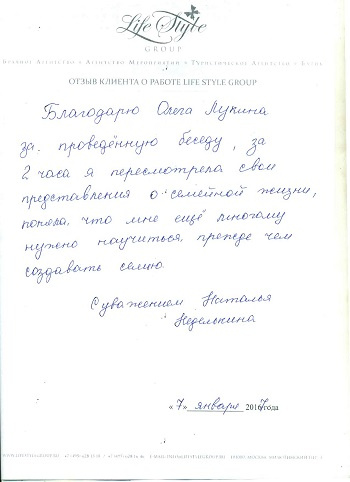 Life Style
GROUP
БРАЧНОЕ АГЕНТСТВО • АГЕНТСТВО МЕРОПРИЯТИЙ • ТУРИСТИЧЕСКОЕ АГЕНТСТВО •
ОТЗЫВ КЛИЕНТА О РАБОТЕ LIFE STYLE GROUP
Благодарю Олега Мукина
за проведённую беседу, за
2 часа я пересмотрела свои
представления о семейной жизни,
поняла, что мне ещё многому
нужно научиться, прежде чем
создавать семью.
С уважением Наталья
Неделькина
«7» января 2017 года